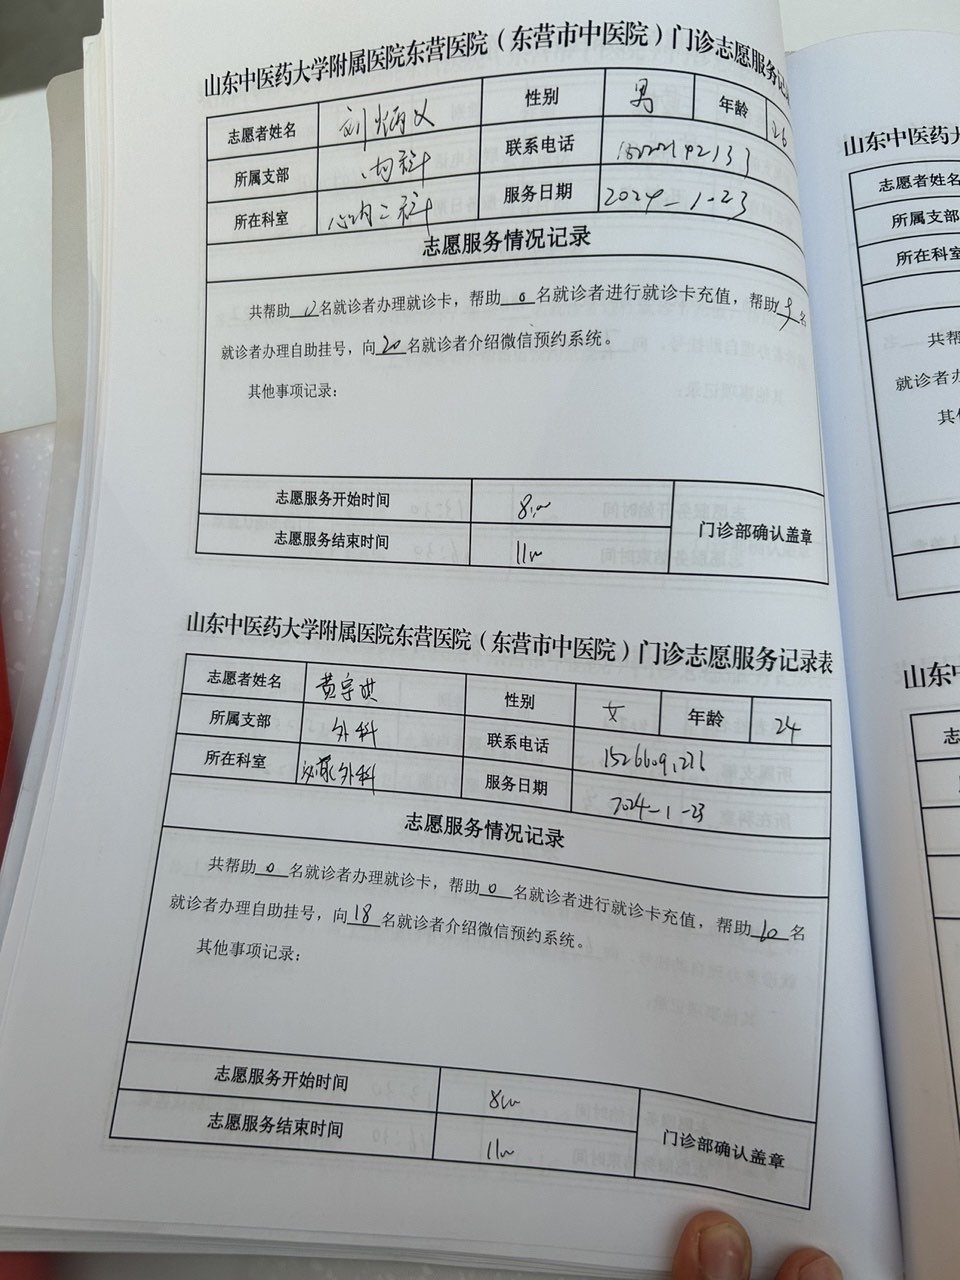 山东中医药大学附属医院东营医院（东营市中医院）门诊志愿服务记
志愿者姓名 刘炳义 性别 男 年龄 26
所属支部 内科 联系电话
所在科室 心内二科 服务日期 2024-1-23
志愿服务情况记录
共帮助 0 名就诊者办理就诊卡，帮助 0 名就诊者进行就诊卡充值，帮助 名
就诊者办理自助挂号，向 20 名就诊者介绍微信预约系统。
其他事项记录：
志愿服务开始时间 8:00
志愿服务结束时间 11:00
门诊部确认盖章
山东中医药大学附属医院东营医院（东营市中医院）门诊志愿服务记录表
志愿者姓名 黄宇 性别 女 年龄 24
所属支部 外科 联系电话
所在科室 泌尿外科 服务日期 2024-1-23
志愿服务情况记录
共帮助 0 名就诊者办理就诊卡，帮助 0 名就诊者进行就诊卡充值，帮助 名
就诊者办理自助挂号，向 18 名就诊者介绍微信预约系统。
其他事项记录：
志愿服务开始时间 8:00
志愿服务结束时间 11:00
门诊部确认盖章
山东中医药大
志愿者姓名
所属支部
所在科室
共帮
就诊者办
其
山东中
志